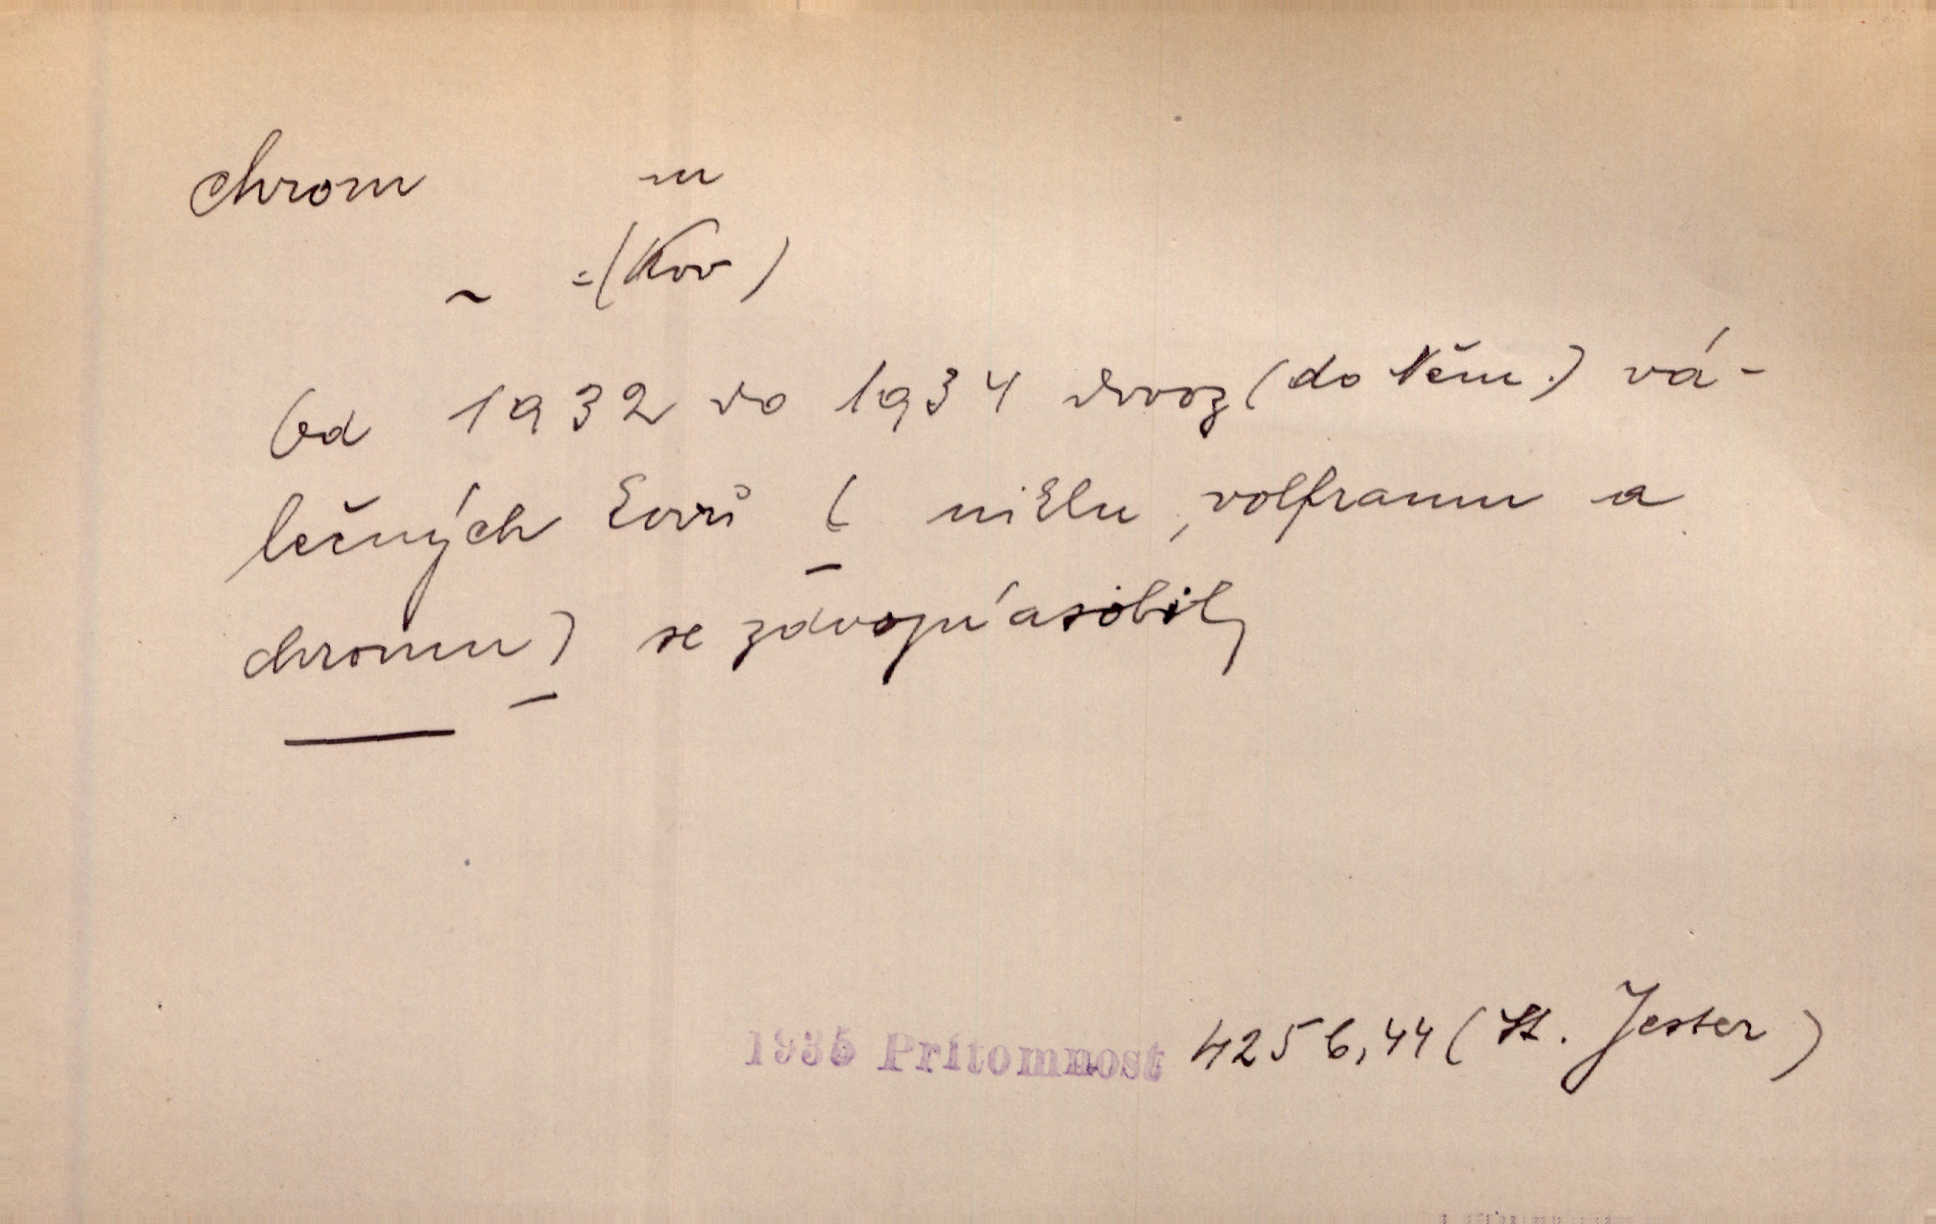 chrom m
~ =(Kov)
Od 1932 do 1934 dovoz (do Něm.) vá-
lečných kovů ( niklu, volframu a
chromu) se zdvojnásobil,
1935 Prítomnost 4256,44 (St. Jester)